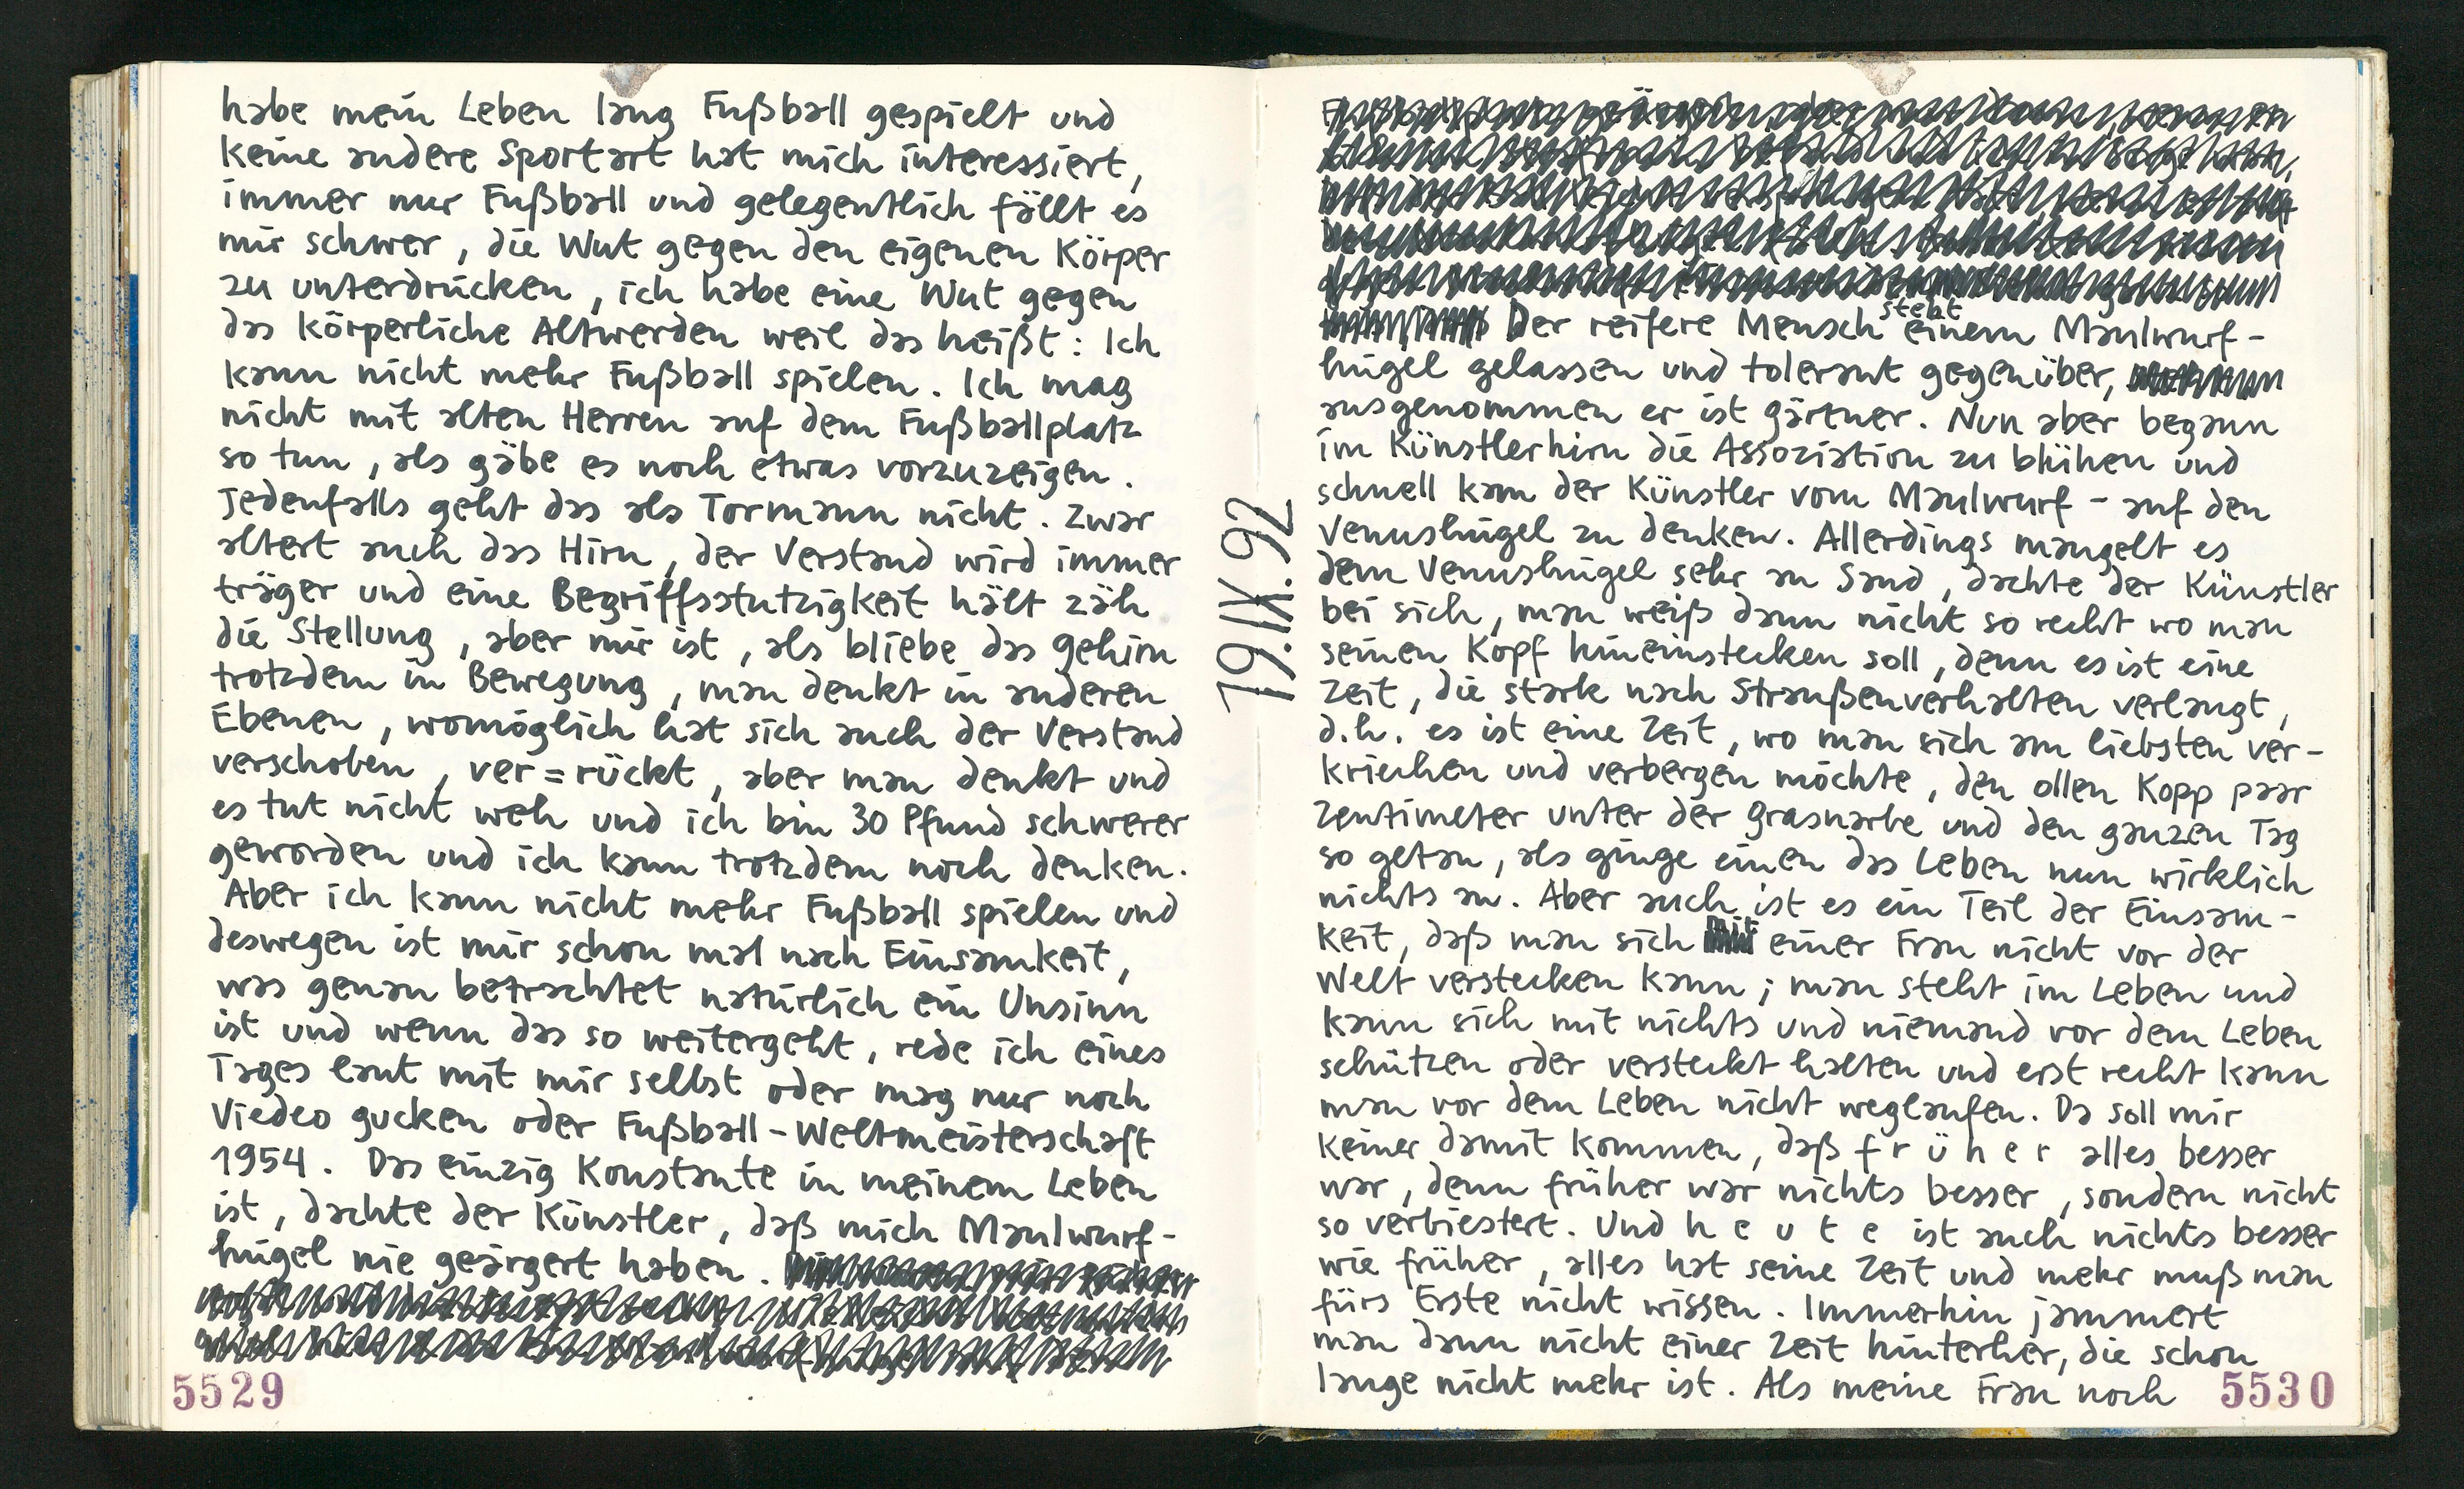 habe mein Leben lang Fußball gespielt und
keine andere Sportart hat mich interessiert,
immer nur Fußball und gelegentlich fällt es
mir schwer, die Wut gegen den eigenen Körper
zu unterdrücken, ich habe eine Wut gegen
das körperliche Altwerden weil das heißt: Ich
kann nicht mehr Fußball spielen. Ich mag
nicht mit alten Herren auf dem Fußballplatz
so tun, als gäbe es noch etwas vorzuzeigen.
Jedenfalls geht das als Tormann nicht. Zwar
altert auch das Hirn, der Verstand wird immer
träger und eine Begriffsstutzigkeit hält zäh
die Stellung, aber mir ist, als bliebe das Gehirn
trotzdem in Bewegung, man denkt in anderen
Ebenen, womöglich hat sich auch der Verstand
verschoben, ver=rückt, aber man denkt und
es tut nicht weh und ich bin 30 Pfund schwerer
geworden und ich kann trotzdem noch denken.
Aber ich kann nicht mehr Fußball spielen und
deswegen ist mir schon mal nach Einsamkeit,
was genau betrachtet natürlich ein Unsinn
ist und wenn das so weitergeht, rede ich eines
Tages laut mit mir selbst oder mag nur noch
Viedeo gucken oder Fußball-Weltmeisterschaft
1954. Das einzig Konstante in meinem Leben
ist, dachte der Künstler, daß mich Maulwurf-
hügel nie geärgert haben.
5529
19.IX.92
Der reifere Mensch steht einem Maulwurf-
hügel gelassen und tolerant gegenüber,
ausgenommen er ist Gärtner. Nun aber begann
im Künstlerhirn die Assoziation zu blühen und
schnell kam der Künstler vom Maulwurf- auf den
Venushügel zu denken. Allerdings mangelt es
dem Venushügel sehr an Sand, dachte der Künstler
bei sich, man weiß dann nicht so recht wo man
seinen Kopf hineinstecken soll, denn es ist eine
Zeit, die stark nach Straußenverhalten verlangt,
d.h. es ist eine Zeit, wo man sich am liebsten ver-
kriechen und verbergen möchte, den ollen Kopp paar
Zentimeter unter der Grasnarbe und den ganzen Tag
so getan, als ginge einen das Leben nun wirklich
nichts an. Aber auch ist es ein Teil der Einsam-
keit, daß man sich mit einer Frau nicht vor der
Welt verstecken kann; man steht im Leben und
kann sich mit nichts und niemand vor dem Leben
schützen oder versteckt halten und erst recht kann
man vor dem Leben nicht weglaufen. Da soll mir
keiner damit kommen, daß f r ü h e r alles besser
war, denn früher war nichts besser, sondern nicht
so verbiestert. Und h e u t e ist auch nichts besser
wie früher, alles hat seine Zeit und mehr muß man
fürs Erste nicht wissen. Immerhin jammert
man dann nicht einer Zeit hinterher, die schon
lange nicht mehr ist. Als meine Frau noch
5530